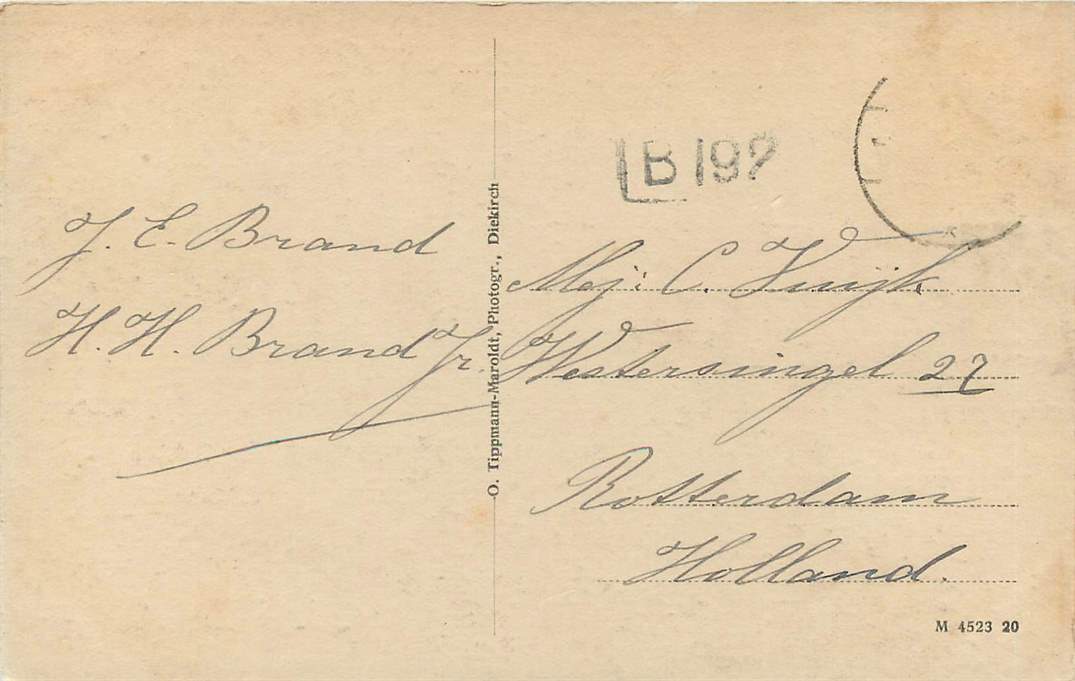 J. E. Brand
H. H. Brand Jr.
O. Tippmann-Maroldt, Photogr., Diekirch
B 192
Mej: C. Kuijk
Westersingel 27
Rotterdam
Holland.
M 4523 20